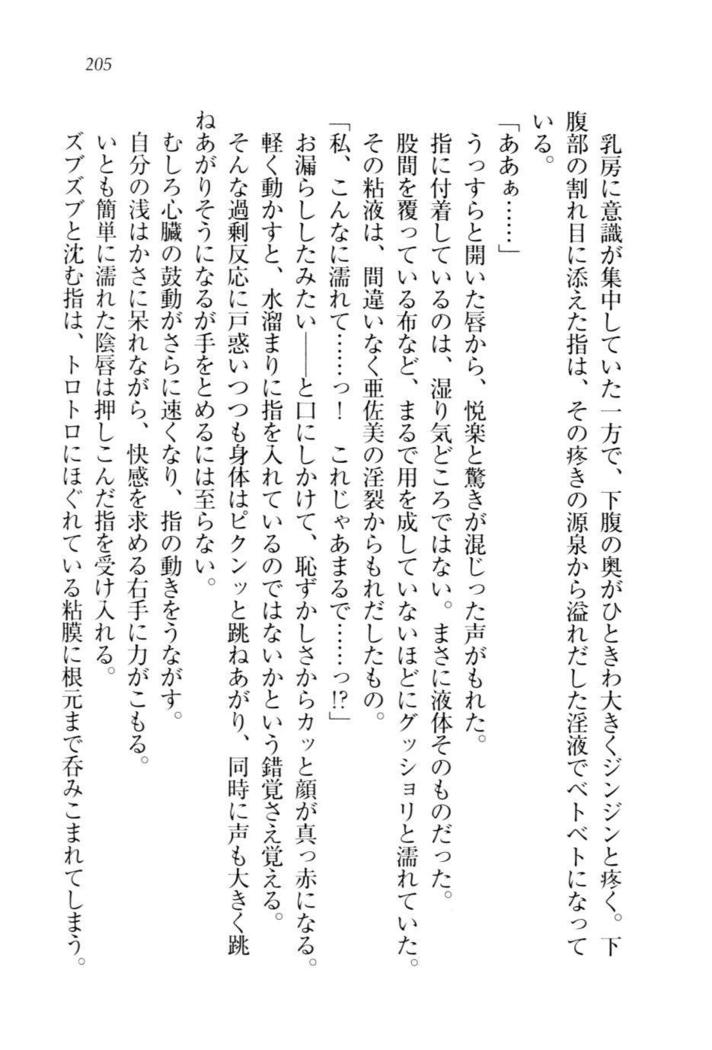 205
乳房に意識が集中していた一方で、下腹の奥がひときわ大きくジンジンと疼く。下
腹部の割れ目に添えた指は、その疼きの源泉から溢れだした淫液でベトベトになって
いる。
「ああぁ……」
うっすらと開いた唇から、悦楽と驚きが混じった声がもれた。
指に付着しているのは、湿り気どころではない。まさに液体そのものだった。
股間を覆っている布など、まるで用を成していないほどにグッショリと濡れていた。
その粘液は、間違いなく亜佐美の淫裂からもれだしたもの。
「私、こんなに濡れて……っ！　これじゃあまるで……っ!?」
お漏らししたみたい――と口にしかけて、恥ずかしさからカッと顔が真っ赤になる。
軽く動かすと、水溜まりに指を入れているのではないかという錯覚さえ覚える。
そんな過剰反応に戸惑いつつも身体はピクンッと跳ねあがり、同時に声も大きく跳
ねあがりそうになるが手をとめるには至らない。
むしろ心臓の鼓動がさらに速くなり、指の動きをうながす。
自分の浅はかさに呆れながら、快感を求める右手に力がこもる。
いとも簡単に濡れた陰唇は押しこんだ指を受け入れる。
ズブズブと沈む指は、トロトロにほぐれている粘膜に根元まで呑みこまれてしまう。